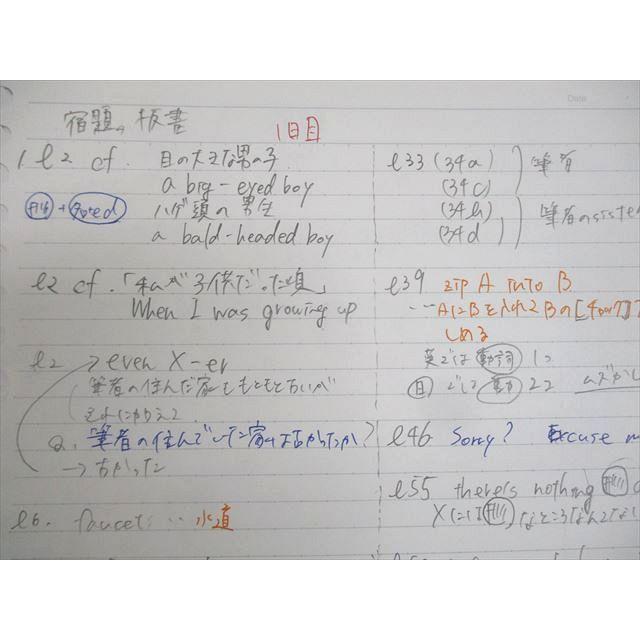 宿題の板書
1日目
l2 cf. 目の大きな男の子
a big-eyed boy
形 + 名ed ハゲ頭の男生
a bald-headed boy
l2 cf.「私が子供だった頃」
When I was growing up
l2 → even X-er
筆者の住んだ家ももともと古いが
Q. 筆者の住んでいた家は古かったか?
→ 古かった
l6. faucet … 水道
l33 (34a) 筆者
(34c)
(34h) 筆者のsiste
(34d)
l39 zip A into B
… AにBを入れてBの
しめる
英では動詞 12
日 では 22 ムズかし
l46 Sorry? Excuse m
l55 there's nothing 形
Xには形なところなんてな